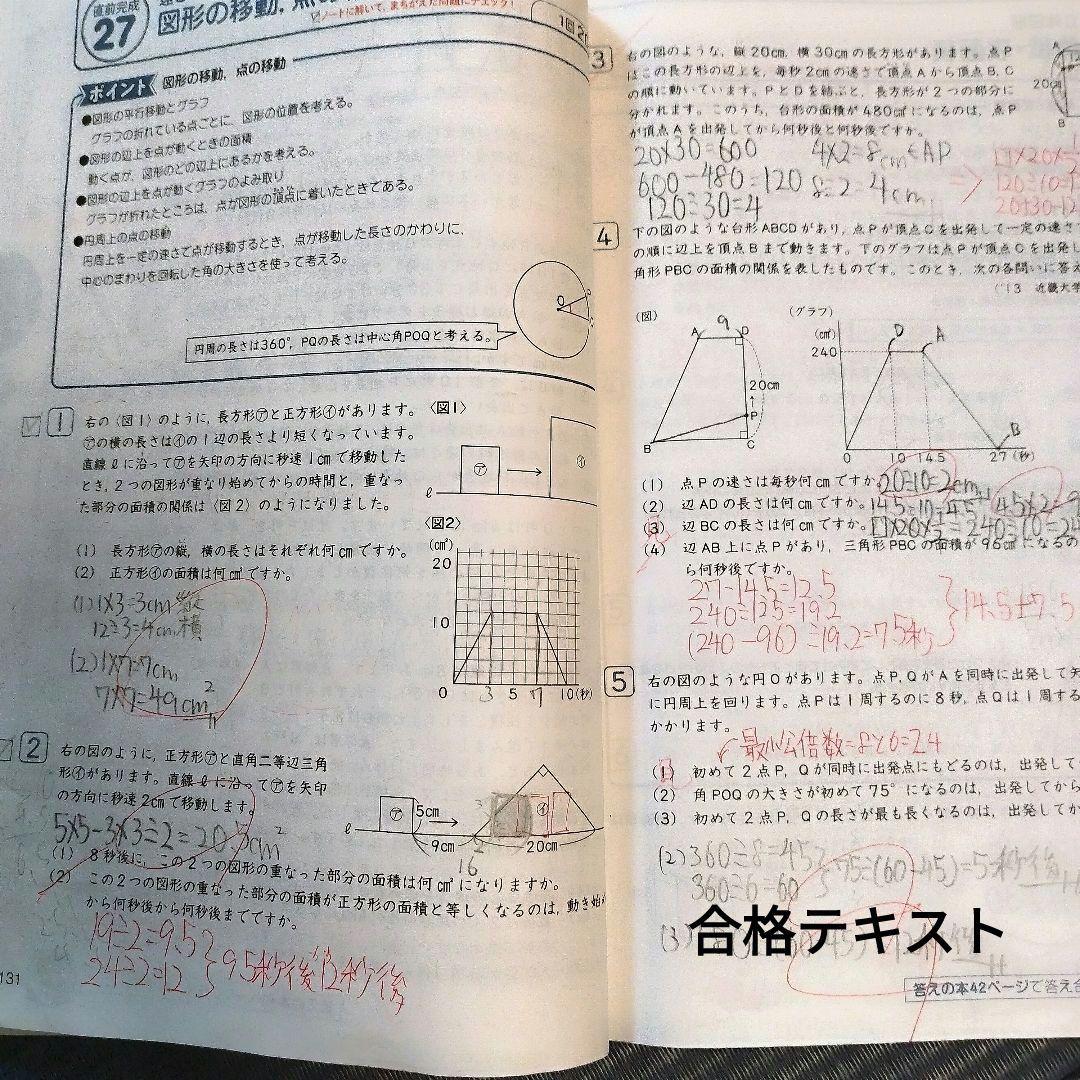 直前完成
27
図形の移動,
ノートに解いて、まちがえた問題にチェック!
ポイント 図形の移動,点の移動
●図形の平行移動とグラフ
グラフの折れている点ごとに,図形の位置を考える。
●図形の辺上を点が動くときの面積
動く点が,図形のどの辺上にあるかを考える。
●図形の辺上を点が動くグラフのよみ取り
グラフが折れたところは,点が図形の頂点に着いたときである。
●円周上の点の移動
円周上を一定の速さで点が移動するとき,点が移動した長さのかわりに,
中心のまわりを回転した角の大きさを使って考える。
円周の長さは360°,PQの長さは中心角POQと考える。
O
1
右の〈図1〉のように,長方形㋐と正方形㋑があります。
㋐の横の長さは㋑の1辺の長さより短くなっています。
直線ℓに沿って㋐を矢印の方向に秒速1cmで移動した
とき,2つの図形が重なり始めてからの時間と,重なっ
た部分の面積の関係は〈図2〉のようになりました。
〈図1〉
㋐ ㋑
ℓ
〈図2〉
(cm²)
20
10
0 3 5 7 10(秒)
(1) 長方形㋐の縦,横の長さはそれぞれ何cmですか。
(2) 正方形㋑の面積は何cm²ですか。
(1) 1×3=3cm 縦
12÷3=4cm 横
(2) 1×7=7cm
7×7=49cm²
2
右の図のように,正方形㋐と直角二等辺三角
形㋑があります。直線ℓに沿って㋐を矢印
の方向に秒速2cmで移動します。
5×5-3×3÷2=20.5cm²
(1) 8秒後に,この2つの図形の重なった部分の面積は何cm²になりますか。
(2) この2つの図形の重なった部分の面積が正方形の面積と等しくなるのは,動き始め
から何秒後から何秒後までですか。
㋐ 5cm ㋑
ℓ 9cm 20cm
16
19÷2=9.5
24÷2=12
9.5秒後 12秒後
131
3
右の図のような,縦20cm,横30cmの長方形があります。点P
はこの長方形の辺上を,毎秒2cmの速さで頂点Aから頂点B,C
の順に動いています。PとDを結ぶと,長方形が2つの部分に
分かれます。このうち,台形の面積が480cm²になるのは,点P
が頂点Aを出発してから何秒後と何秒後ですか。
A
20c
B
20×30=600 4×2=8cm←AP
600-480=120 8÷2 4cm
120÷30=4
4
下の図のような台形ABCDがあり,点Pが頂点Cを出発して一定の速さ
の順に辺上を頂点Bまで動きます。下のグラフは点Pが頂点Cを出発し
角形PBCの面積の関係を表したものです。このとき,次の各問いに答え
('13 近畿大学
(図)
A 9 D
20cm
P
B C
(グラフ)
(cm²)
240
D A
B
0 10 14.5 27(秒)
(1) 点Pの速さは毎秒何cmですか。 20÷10=2cm
(2) 辺ADの長さは何cmですか。 14.5-10=4.5 4.5×2=9
(3) 辺BCの長さは何cmですか。 □×20×½=240÷10=24
(4) 辺AB上に点Pがあり,三角形PBCの面積が96cm²になるの
ら何秒後ですか。
27-14.5=12.5
240÷12.5=19.2
(240-96)÷19.2=7.5秒
14.5+7.5
5
右の図のような円Oがあります。点P,QがAを同時に出発して矢
に円周上を回ります。点Pは1周するのに8秒,点Qは1周する
かかります。
最小公倍数=8と6=24
(1) 初めて2点P,Qが同時に出発点にもどるのは,出発して
(2) 角POQの大きさが初めて75°になるのは,出発してから
(3) 初めて2点P,Qの長さが最も長くなるのは,出発してか
(2) 360÷8=45 75÷(60-45)=5秒後
360÷6=60
(3)
合格テキスト
答えの本42ページで答え合